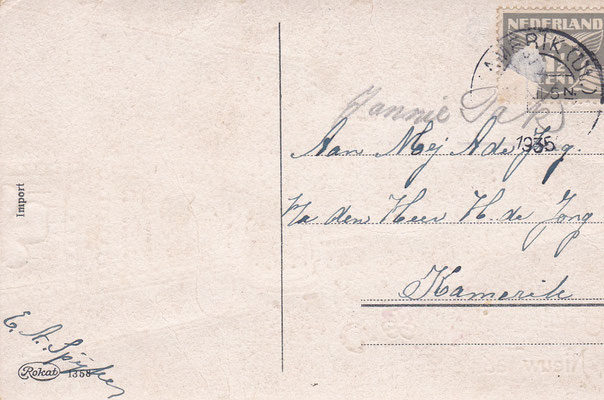 NEDERLAND
CENT
KAMERIK (Utr.)
1935
Jannie
Aan Mej A de Jong.
P/a den Heer H. de Jong
Kamerik
Import
E. A. Spijker
Rokat 1358